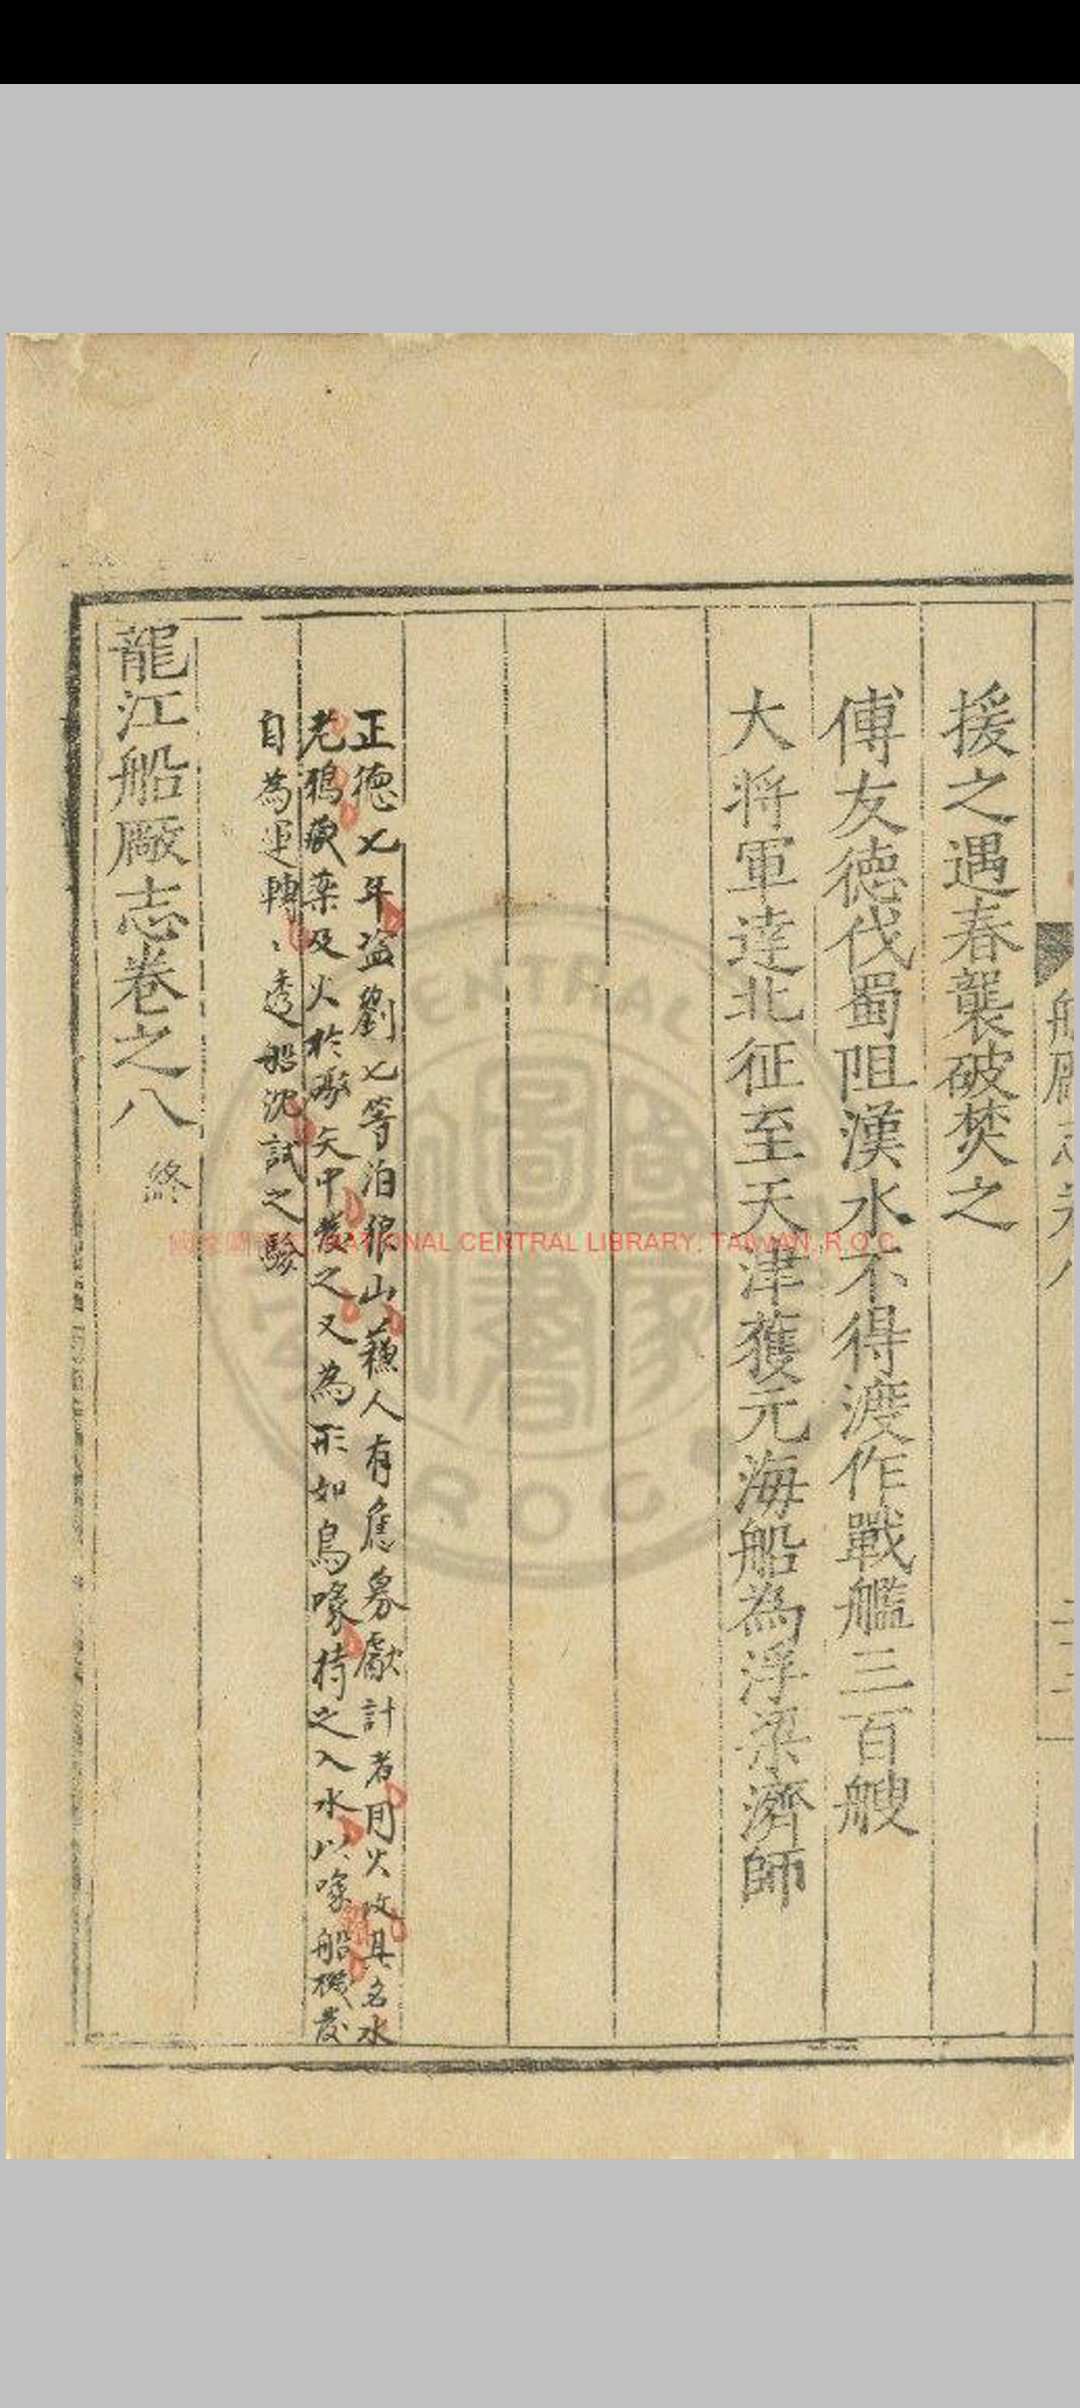 船廠志卷八
援之遇春襲破焚之
傅友德伐蜀阻漢水不得渡作戰艦三百艘
大將軍達北征至天津獲元海船為浮梁濟師
正德七年盜劉七等泊狼山蘇人有應募獻計者用火攻具名水
老鴉藏藥及火於磢矢中發之又為形如鳥喙持之入水以喙船機發
自為運轉〻透船沈試之驗
龍江船廠志卷之八 終
NATIONAL CENTRAL LIBRARY, TAIWAN, R.O.C.